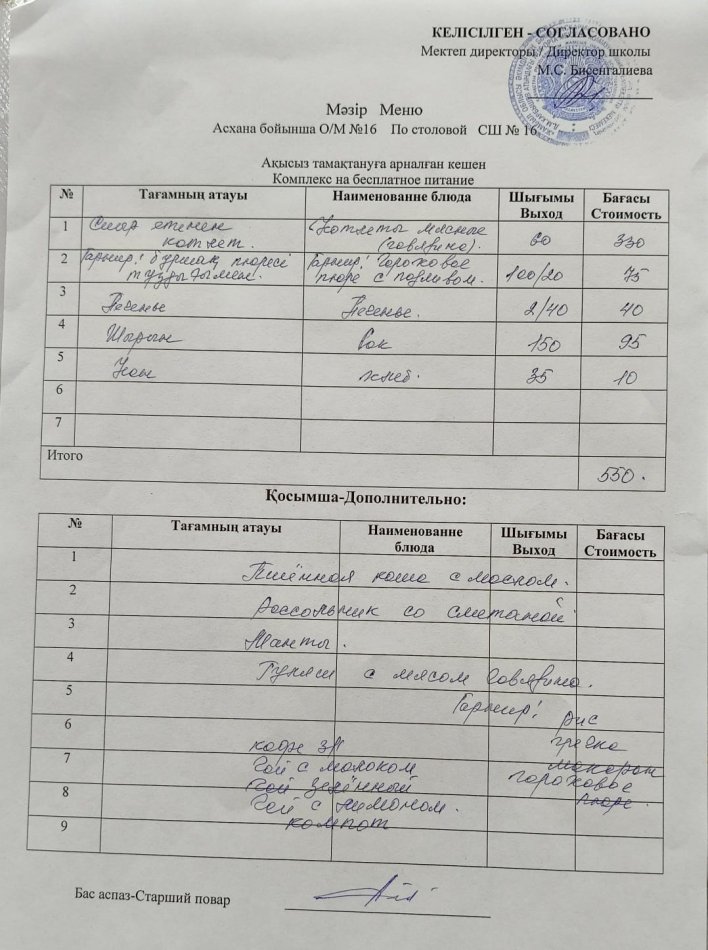 КЕЛІСІЛГЕН - СОГЛАСОВАНО
Мектеп директоры / Директор школы
М.С. Бисенгалиева
Мәзір Меню
Асхана бойынша О/М №16 По столовой СШ № 16
Ақысыз тамақтануға арналған кешен
Комплекс на бесплатное питание
№ Тағамның атауы Наименованне блюда Шығымы Выход Бағасы Стоимость
1 Сиыр етінен котлет. Котлеты мясные (говядина). 60 330
2 Гарнир: бұршақ пюресі тұздығымен. Гарнир: Гороховое пюре с подливом. 100/20 75
3 Печенье Печенье. 2/40 40
4 Шырын Сок 150 95
5 Нан хлеб. 35 10
6
7
Итого 550.
Қосымша-Дополнительно:
№ Тағамның атауы Наименованне блюда Шығымы Выход Бағасы Стоимость
1 Пшённая каша с маслом.
2 Рассольник со сметаной
3 Манты.
4 Гуляш с мясом говядина.
5 Гарнир: рис
6 гречка
кофе 3/1 макарон
7 Чай с молоком гороховое
чай зелёный пюре.
8 Чай с лимоном.
компот
9
Бас аспаз-Старший повар